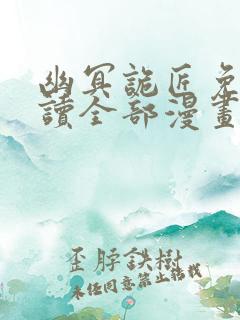 幽冥詭匠免
讀全部漫畫
歪脖鉄樹
未经同意禁止转载